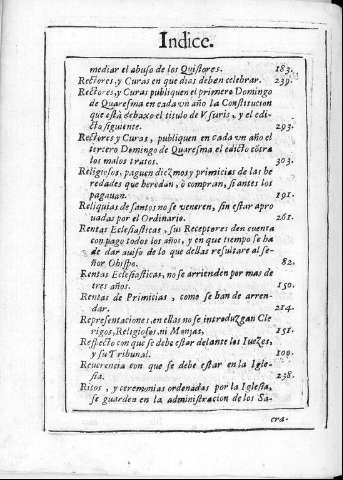 Indice.
mediar el abuso de los Quistores. 183.
Rectores, y Curas en que dias deban celebrar. 239.
Rectores, y Curas publiquen el primero Domingo
de Quaresma en cada vn año la Constitucion
que està debaxo el titulo de Vsuris, y el edi-
cto siguiente. 293.
Rectores y Curas, publiquen en cada vn año el
tercero Domingo de Quaresma el edicto cõtra
los malos tratos. 303.
Religiosos, paguen diezmos y primicias de las he
redades que heredan, ò compran, si antes los
pagauan. 191.
Reliquias de santos no se veneren, sin estar apro
uadas por el Ordinario. 261.
Rentas Eclesiasticas, sus Receptores den cuenta
con pago todos los años, y en que tiempo se ha
de dar auiso de lo que dellas resultare al se-
ñor Obispo. 82.
Rentas Eclesiasticas, no se arrienden por mas de
tres años. 150.
Rentas de Primicias, como se han de arren-
dar. 214.
Representaciones, en ellas no se introduzgan Cle
rigos, Religiosos, ni Monjas, 151.
Respecto con que se debe estar delante los Iuezes,
y su Tribunal. 100.
Reuerencia con que se debe estar en la Igle-
sia. 238.
Ritos, y ceremonias ordenadas por la Iglesia,
se guarden en la administracion de los Sa-
cra-